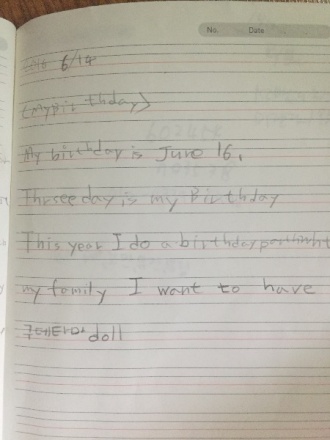 No. Date
6/14
<MyBirthday>
My birthday is June 16.
Threee day is my Birthday
This year I do a birthday
my family I want to have
doll